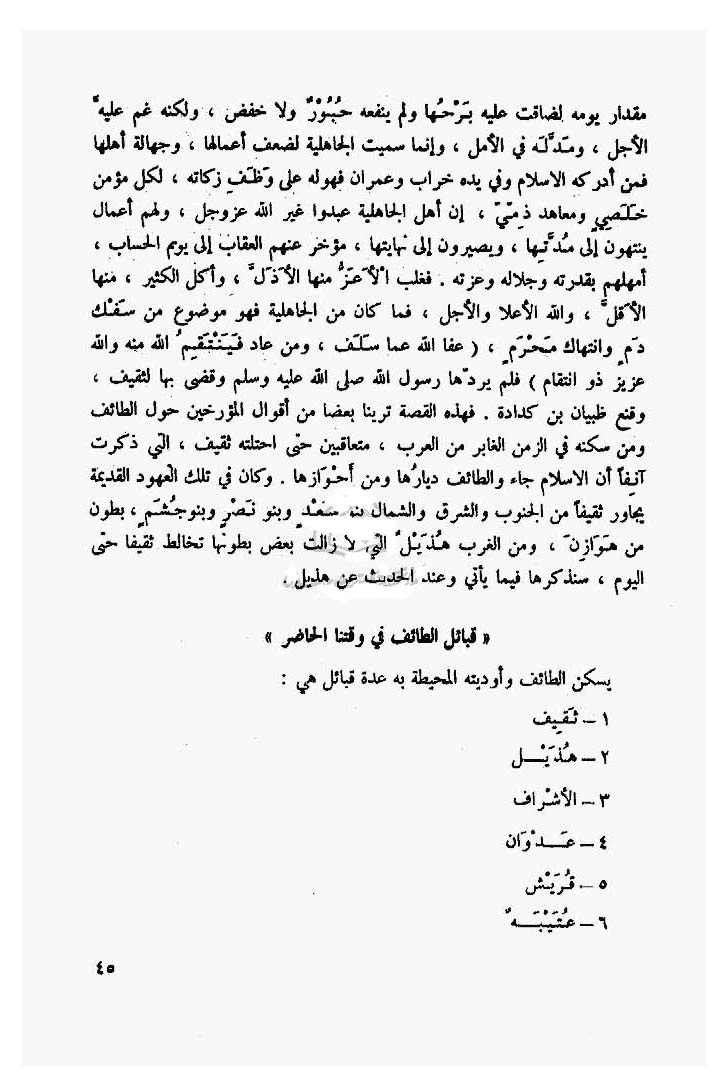 مقدار يومه لضاقت عليه بَرْحُها ولم ينفعه حُبُوْرٌ ولا خفض ، ولكنه غم عليه
الأجل ، ومَدَّله في الأمل ، وإنما سميت الجاهلية لضعف أعمالها ، وجهالة أهلها
فمن أدركه الاسلام وفي يده خراب وعمران فهوله على وَظَفِ زكاته ، لكل مؤمن
خَلَصِي ومعاهد ذمّيّ ، إن أهل الجاهلية عبدوا غير الله عزوجل ، ولهم أعمال
ينتهون إلى مُدَّتها ، ويصيرون إلى نهايتها ، مؤخر عنهم العقاب إلى يوم الحساب ،
أمهلهم بقدرته وجلاله وعزته . فغلب الْأَعَزُّ منها الأَذَلَّ ، وأكل الكثير ، منها
الأَقلَّ ، والله الأعلا والأجل ، فما كان من الجاهلية فهو موضوع من سَفْك
دَمٍ وانتهاك مَحْرَمٍ ، ( عفا الله عما سَلَف ، ومن عاد فَيَنْتَقِمُ الله منه والله
عزيز ذو انتقام ) فلم يردّها رسول الله صلى الله عليه وسلم وقضى بها لثقيف ،
وقنع ظبيان بن كدادة . فهذه القصة ترينا بعضا من أقوال المؤرخين حول الطائف
ومن سكنه في الزمن الغابر من العرب ، متعاقبين حتى احتلته ثقيف ، التي ذكرت
آنفاً أن الاسلام جاء والطائف ديارُها ومن أَحْوَازها . وكان في تلك العهود القديمة
يجاور ثقيفاً من الجنوب والشرق والشمال بنو سَعْدٍ وبنو نَصْرٍ وبنوجُشَمٍ ، بطون
من هَوَازِنَ ، ومن الغرب هُذَيْلٌ التي لا زالت بعض بطونها تخالط ثقيفا حتى
اليوم ، سنذكرها فيما يأتي وعند الحديث عن هذيل .
« قبائل الطائف في وقتنا الحاضر »
يسكن الطائف وأوديته المحيطة به عدة قبائل هي :
١ – ثَقِيف
٢ – هُذَيْـل
٣ – الأشْراف
٤ – عَـدْوَان
٥ – قُرَيْش
٦ – عُتَيْبَـةٌ
٤٥